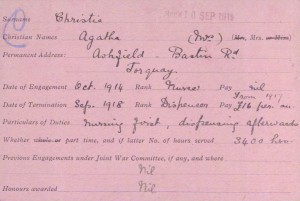 Surname Christie
Christian Names Agatha (Mrs) (Mr., Mrs. or Miss)
Permanent Address: Ashfield. Barton Rd
Torquay.
Date of Engagement Oct. 1914 Rank Nurse Pay nil
from 1917
Date of Termination Sep. 1918 Rank Dispenser Pay £16 per. an
Particulars of Duties nursing first, dispensing afterwards
Whether whole or part time, and if latter No. of hours served 3400 hrs
Previous Engagements under Joint War Committee, if any, and where
Nil
Honours awarded Nil